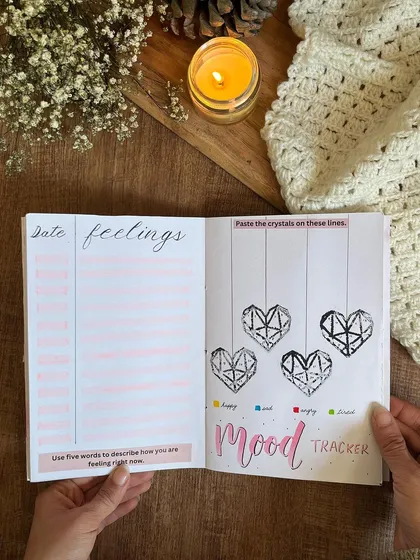 Date
feelings
Use five words to describe how you are
feeling right now.
Paste the crystals on these lines.
happy
sad
angry
tired
mood TRACKER